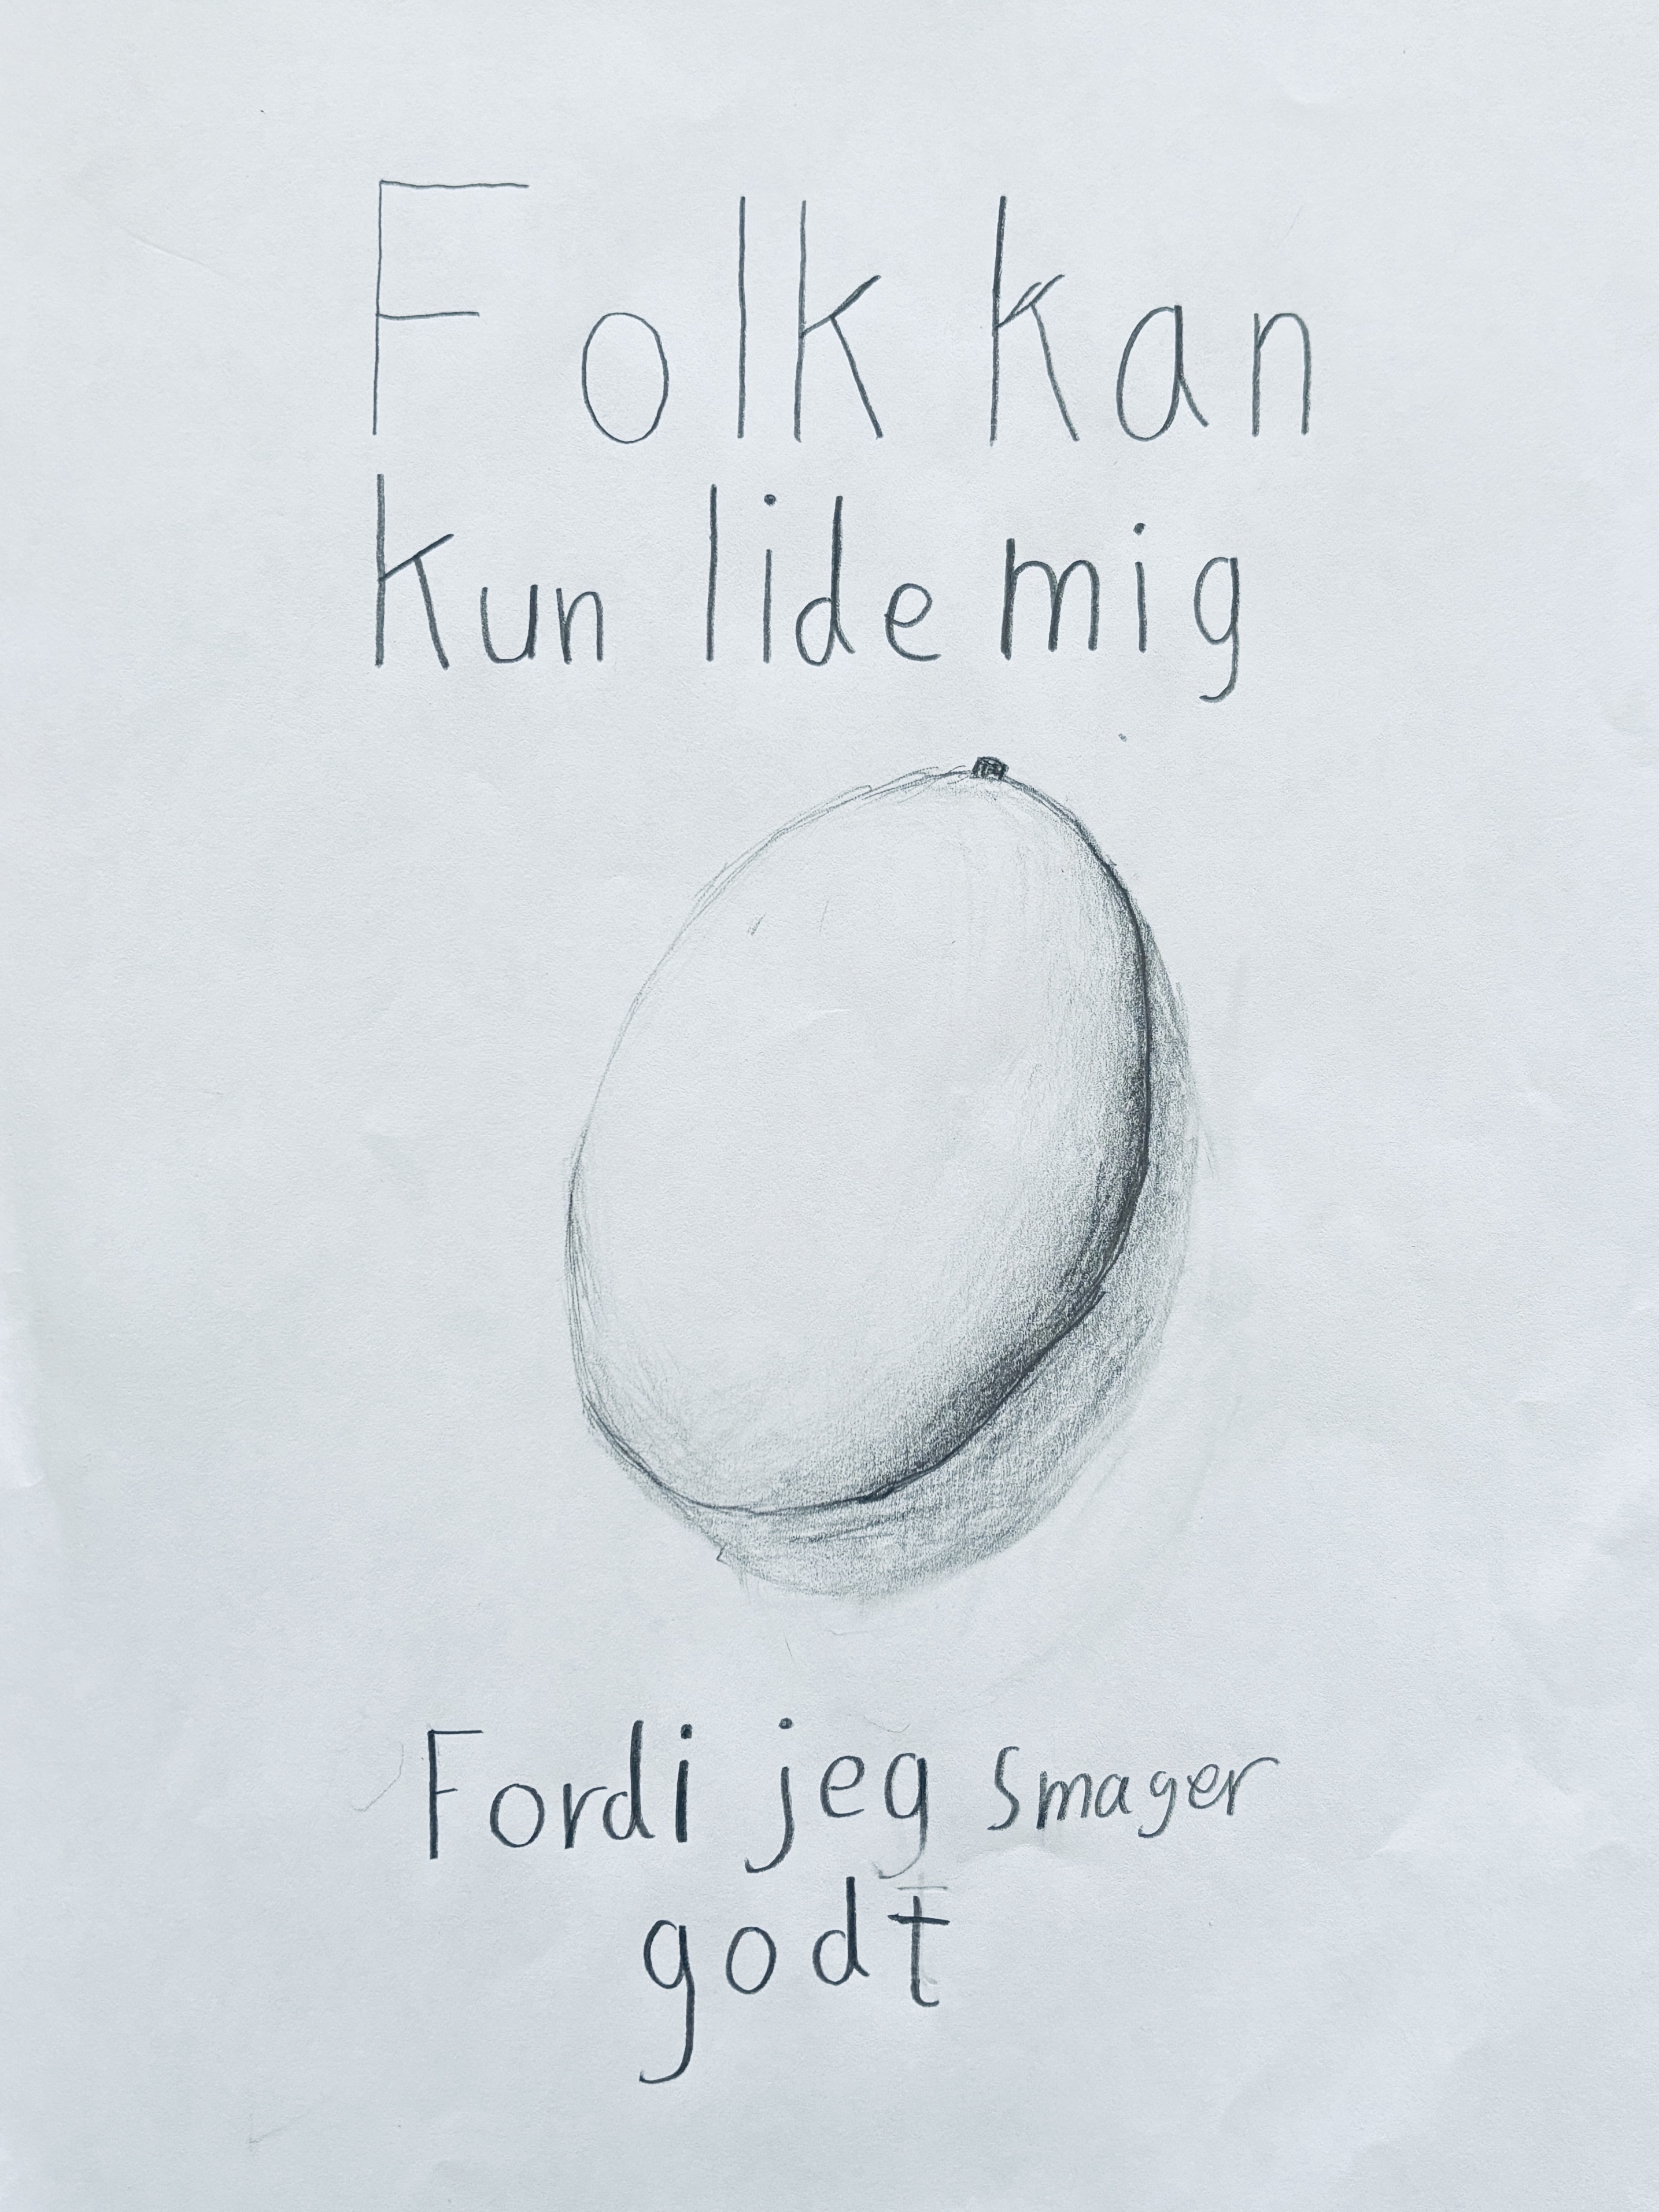 Folk kan
kun lide mig
Fordi jeg smager
godt